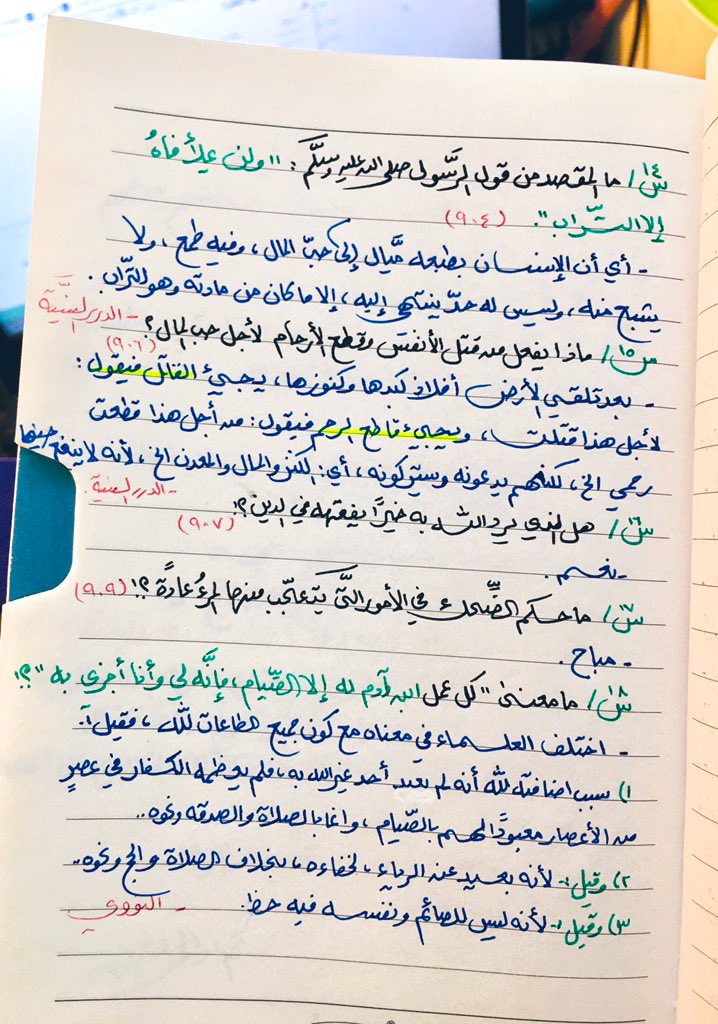 س١٤/ ما المقصد من قول الرَّسول صلى الله عليه وسلَّم: "ولن يملأ فاهُ
إلا التّراب". (٩٠٤)
- أي أن الإنسان بطبعه ميَّال إلى حبّ المال، وفيه طمع، ولا
يشبع منه، وليس له حدّ ينتهي إليه، إلا ما كان من مادته وهو التّراب.
- الدرر السَّنيَّة
س١٥/ ماذا يفعل من قتل الأنفس وقطع الأرحام لأجل حب المال؟ (٩٠٦)
- بعد تلقي الأرض أفلاذ كبدها وكنوزها، يجيئ القاتل فيقول:
لأجل هذا قتلت، ويجيئ قاطع الرحم فيقول: من أجل هذا قطعت
رحمي الخ، لكنهم يدعونه ويتركونه، أي: الكنز والمال والمعدن الخ، لأنه لا ينفع حينها
- الدرر السنية
س١٦/ هل الذي يرد الله به خيرًا يفقهه في الدين؟! (٩٠٧)
- نعم.
س١٧/ ما حكم الضَّحك في الأمور التَّي يتعجّب منها المرءُ عادةً؟! (٩٠٩)
- مباح.
س١٨/ ما معنى "كل عمل ابن آدم له إلا الصِّيام، فإنَّه لي وأنا أجزي به"؟!
- اختلف العلماء في معناه مع كون جميع الطاعات للّٰه، فقيل:
١) سبب اضافته للّٰه أنه لم يعبد أحد غير الله به، فلم يعظم الكفار في عصرٍ
من الأعصار معبودًا لهم بالصِّيام، وانما بالصلاة والصدقه ونحوه..
٢) وقيل:- لأنه بعيد عن الرياءِ، لخفاءه، بخلاف الصلاة والحج ونحوه..
٣) وقيل:- لأنه ليس للصائم ونفسه فيه حظ. - النووي